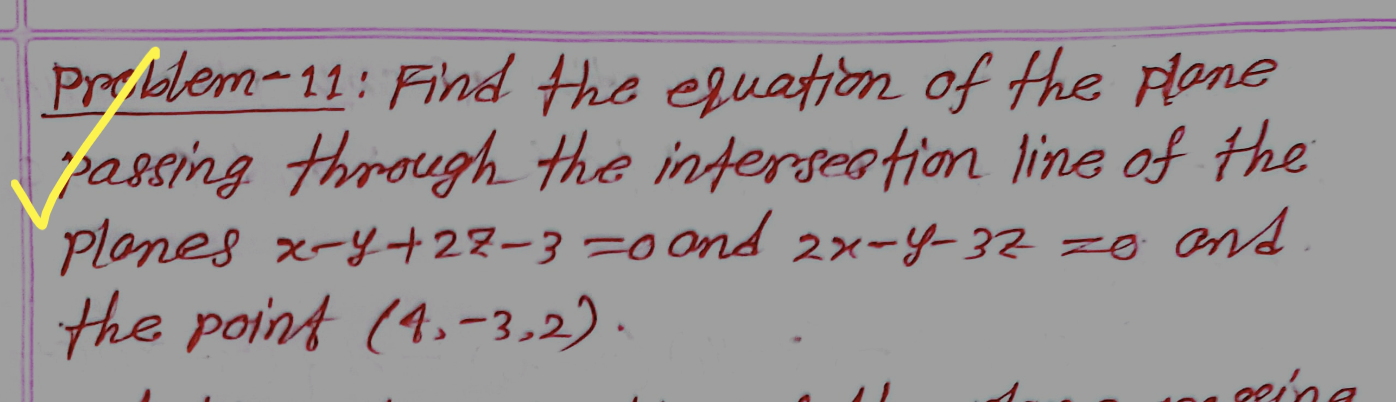 Problem-11: Find the equation of the plane
passing through the intersection line of the
planes x-y+2z-3=0 and 2x-y-3z=0 and
the point (4,-3,2).